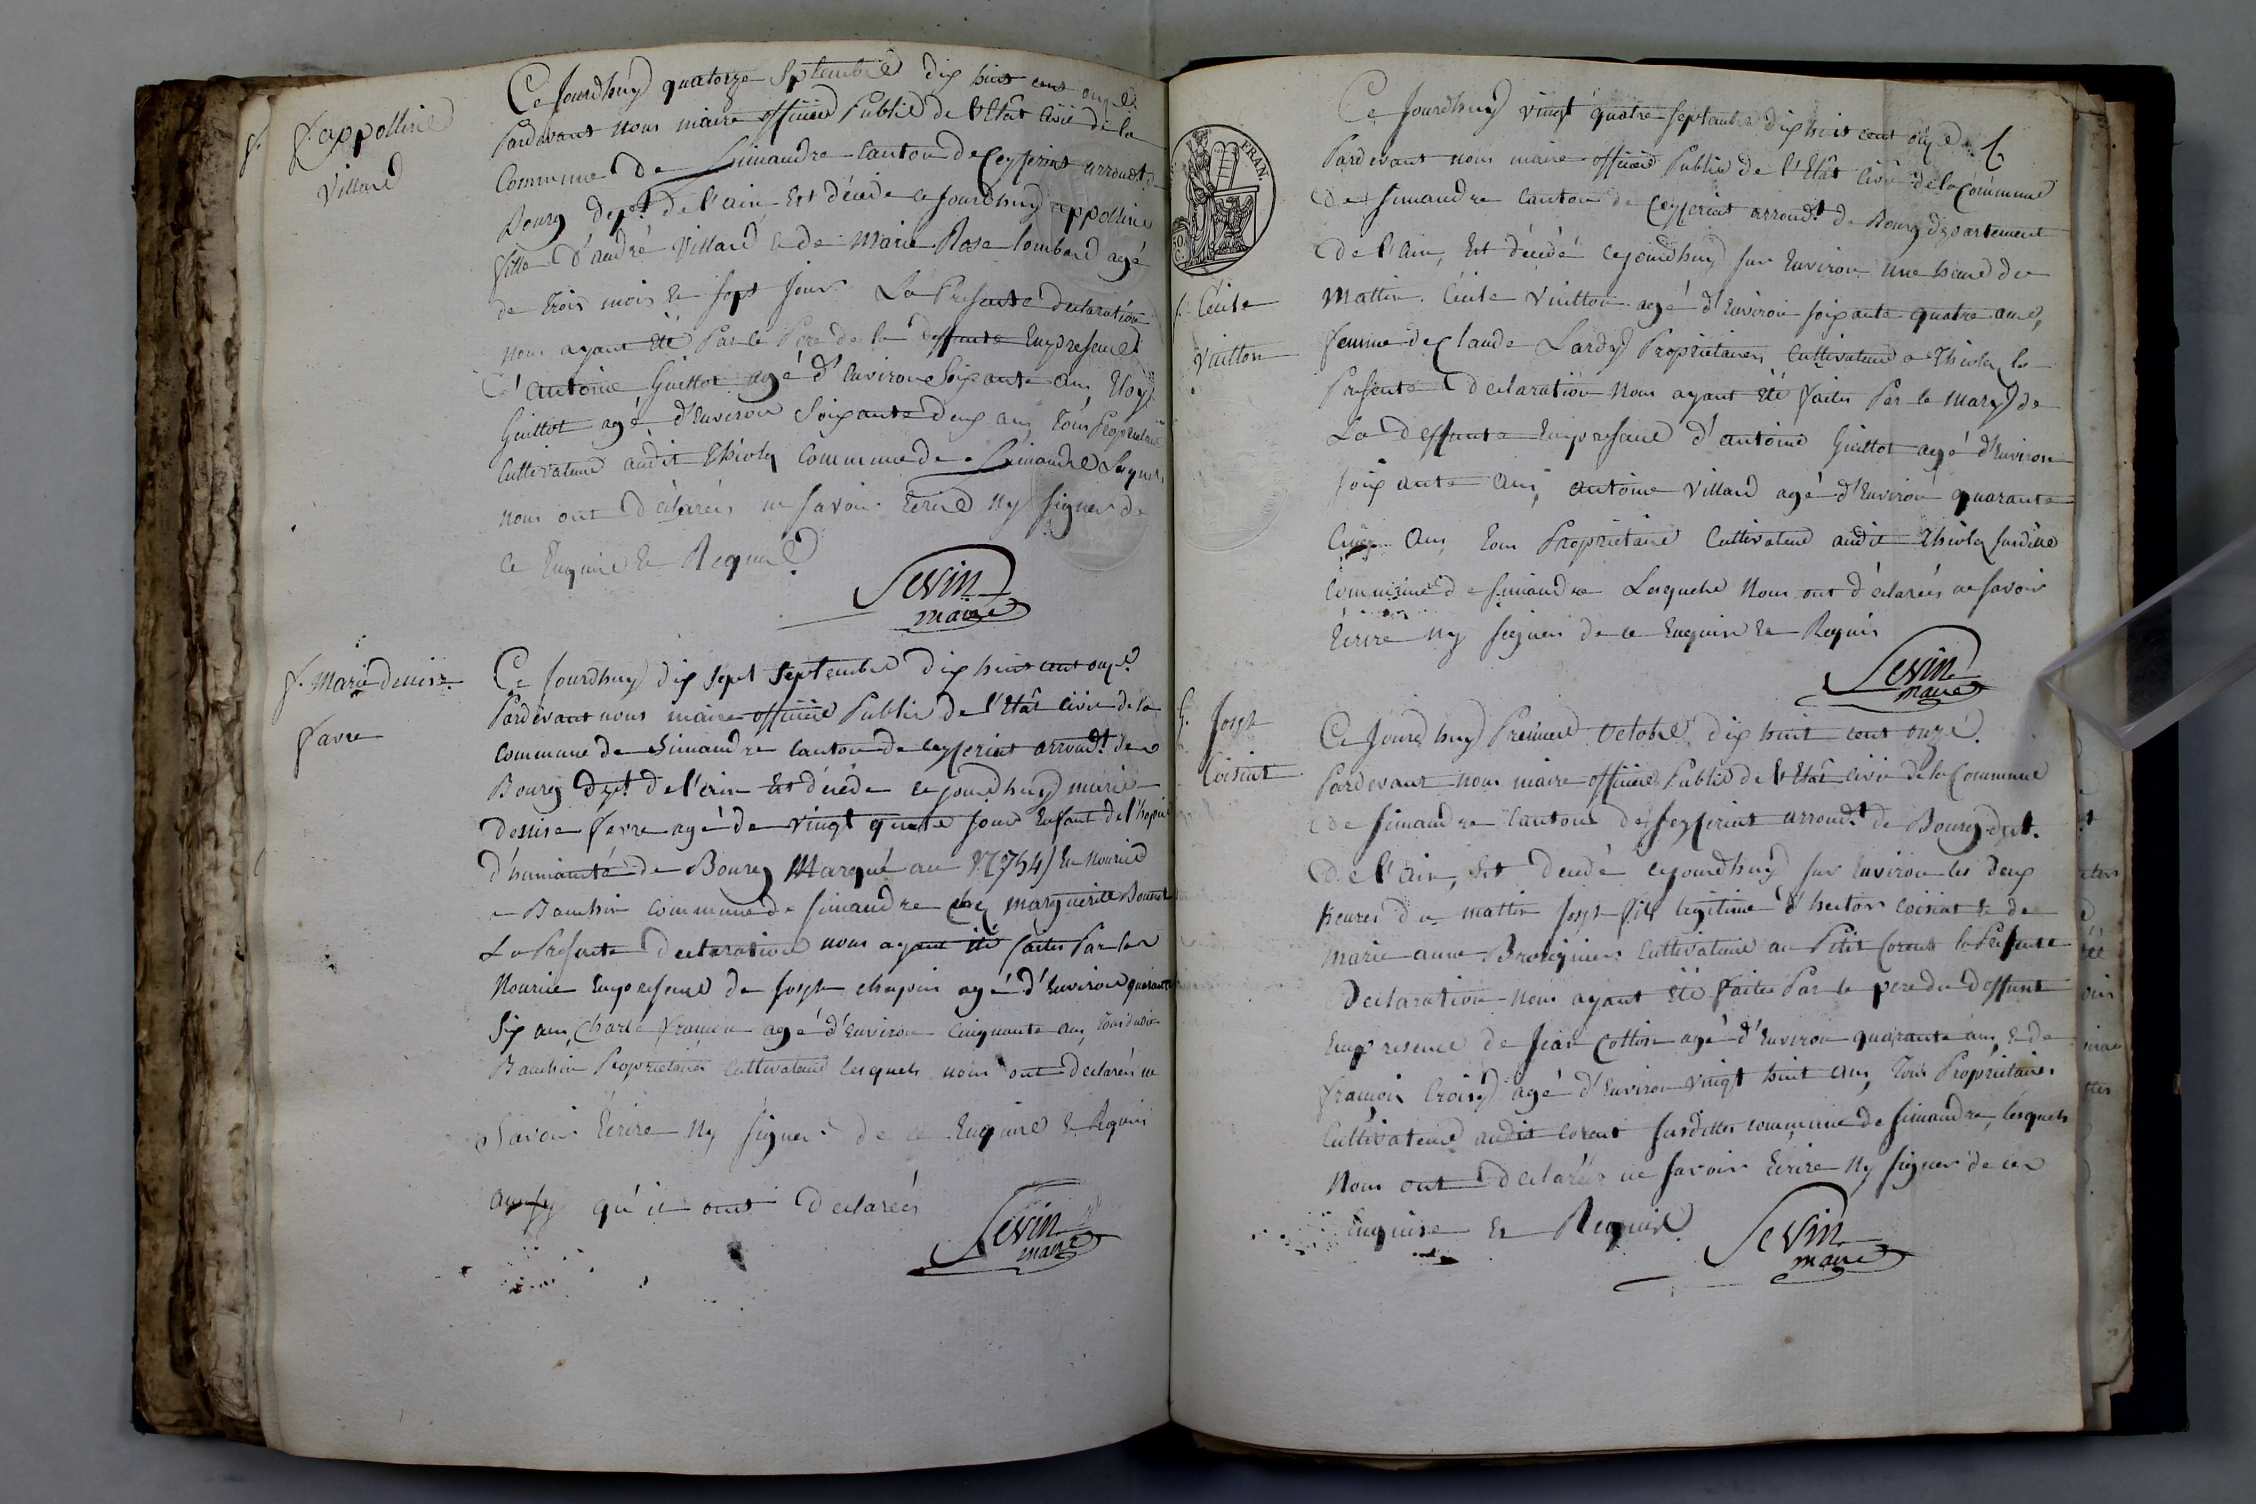 f. appolline
Villard
Ce Jourdhuy quatorze Septembre dix huit cent onze.
Pardevant nous maire officier Public de l'Etât Civil de la
Commune De Simandre Canton de Ceyseriat arrondt. de
Bourg dept. de l'ain Est décédé ce Jourdhuy appolline
fille D'andré Villard & de Marie Rose lombard agé
de trois mois et sept jour La Presente declaration
nous ayant été Par le Pere de la deffunte Enpresence
d'antoine Guillot agé d'Environ Soixante ans, Eloy
Guillot agé d'Environ Soixante deux ans, tous Proprietaire
Cultivateur audit Thioley Commune de Simandre Lesquels
nous ont déclarés ne savoir Ecrire ny signer de
ce Enquis et Requis
Sevin
maire
f. Marie denise
favre
Ce Jourdhuy dix sept Septembre dix huit cent onze
Pardevant nous maire officier Public de l'Etât Civil de la
commune de Simandre canton de ceyseriat arrondt. de
Bourg Dept. de l'ain Est décédé ce jourdhuy marie
denise favre agé de vingt quatre jour Enfant de l'hopital
d'humanité de Bourg Marqué au N. 754 / En Nourice
a Bauchin commune de simandre chez marguerite Bonnet
La Presente declaration nous ayant été faites Par la
Nourice Enpresence de Joseph chapuis agé d'Environ quarante
six ans, Charle francon agé d'Environ Cinquante ans, tous dudit
Bauchin Proprietaires Cultivateur lesquels nous ont declarés ne
Savoir Ecrire Ny signer de ce Enquire & Requis
ausy qu'il ont Declarés
Sevin
maire
FRAN.
f. Cécile
Vuitton
Ce Jourdhuy vingt quatre septembre dix huit cent onze
Pardevant nous maire officier Public de l'Etât Civil de la Commune
de Simandre Canton de Ceyseriat arrondt. de Bourg département
de l'ain, Est décédé cejourdhuy sur Environ une heure du
Mattin. Cécile Vuitton agé d'Environ soixante quatre ans,
femme de Claude Lardy Proprietaires Cultivateur a Thioley la
Presente Declaration nous ayant été faites Par le mary de
La Deffunte Enpresence d'antoine Guillot agé d'Environ
soixante ans, antoine Villard agé d'Environ quarante
Cinq ans, tous Proprietaire Cultivateur audit Thioley susdite
commune de simandre Lesquels Nous ont déclarés ne savoir
Ecrire ny signer de ce Enquis et Requis
Sevin
maire
G. Joseph
Coisiat
Ce Jourdhuy Premier Octobre dix huit cent onze.
Pardevant nous maire officier Public de l'Etat Civil de la Commune
de simandre Canton de Ceyseriat arrondt. de Bourg dept.
De l'ain, Est décédé cejourdhuy sur Environ les deux
heures du mattin Joseph fils legitime d'hector Coisiat & de
Marie anne Cultivateur au Petit Corent la Presente
Declaration nous ayant été faites Par le pere du deffunt
Enpresence de Jean Cotton agé d'Environ quarante ans, & de
francois Croisy agé d'Environ vingt huit ans, tous Proprietaires
Cultivateur audit Corent susdittes commune de simandre, lesquels
Nous ont Declarés ne savoir Ecrire Ny signer de ce
Enquise Et Requise
Sevin
maire